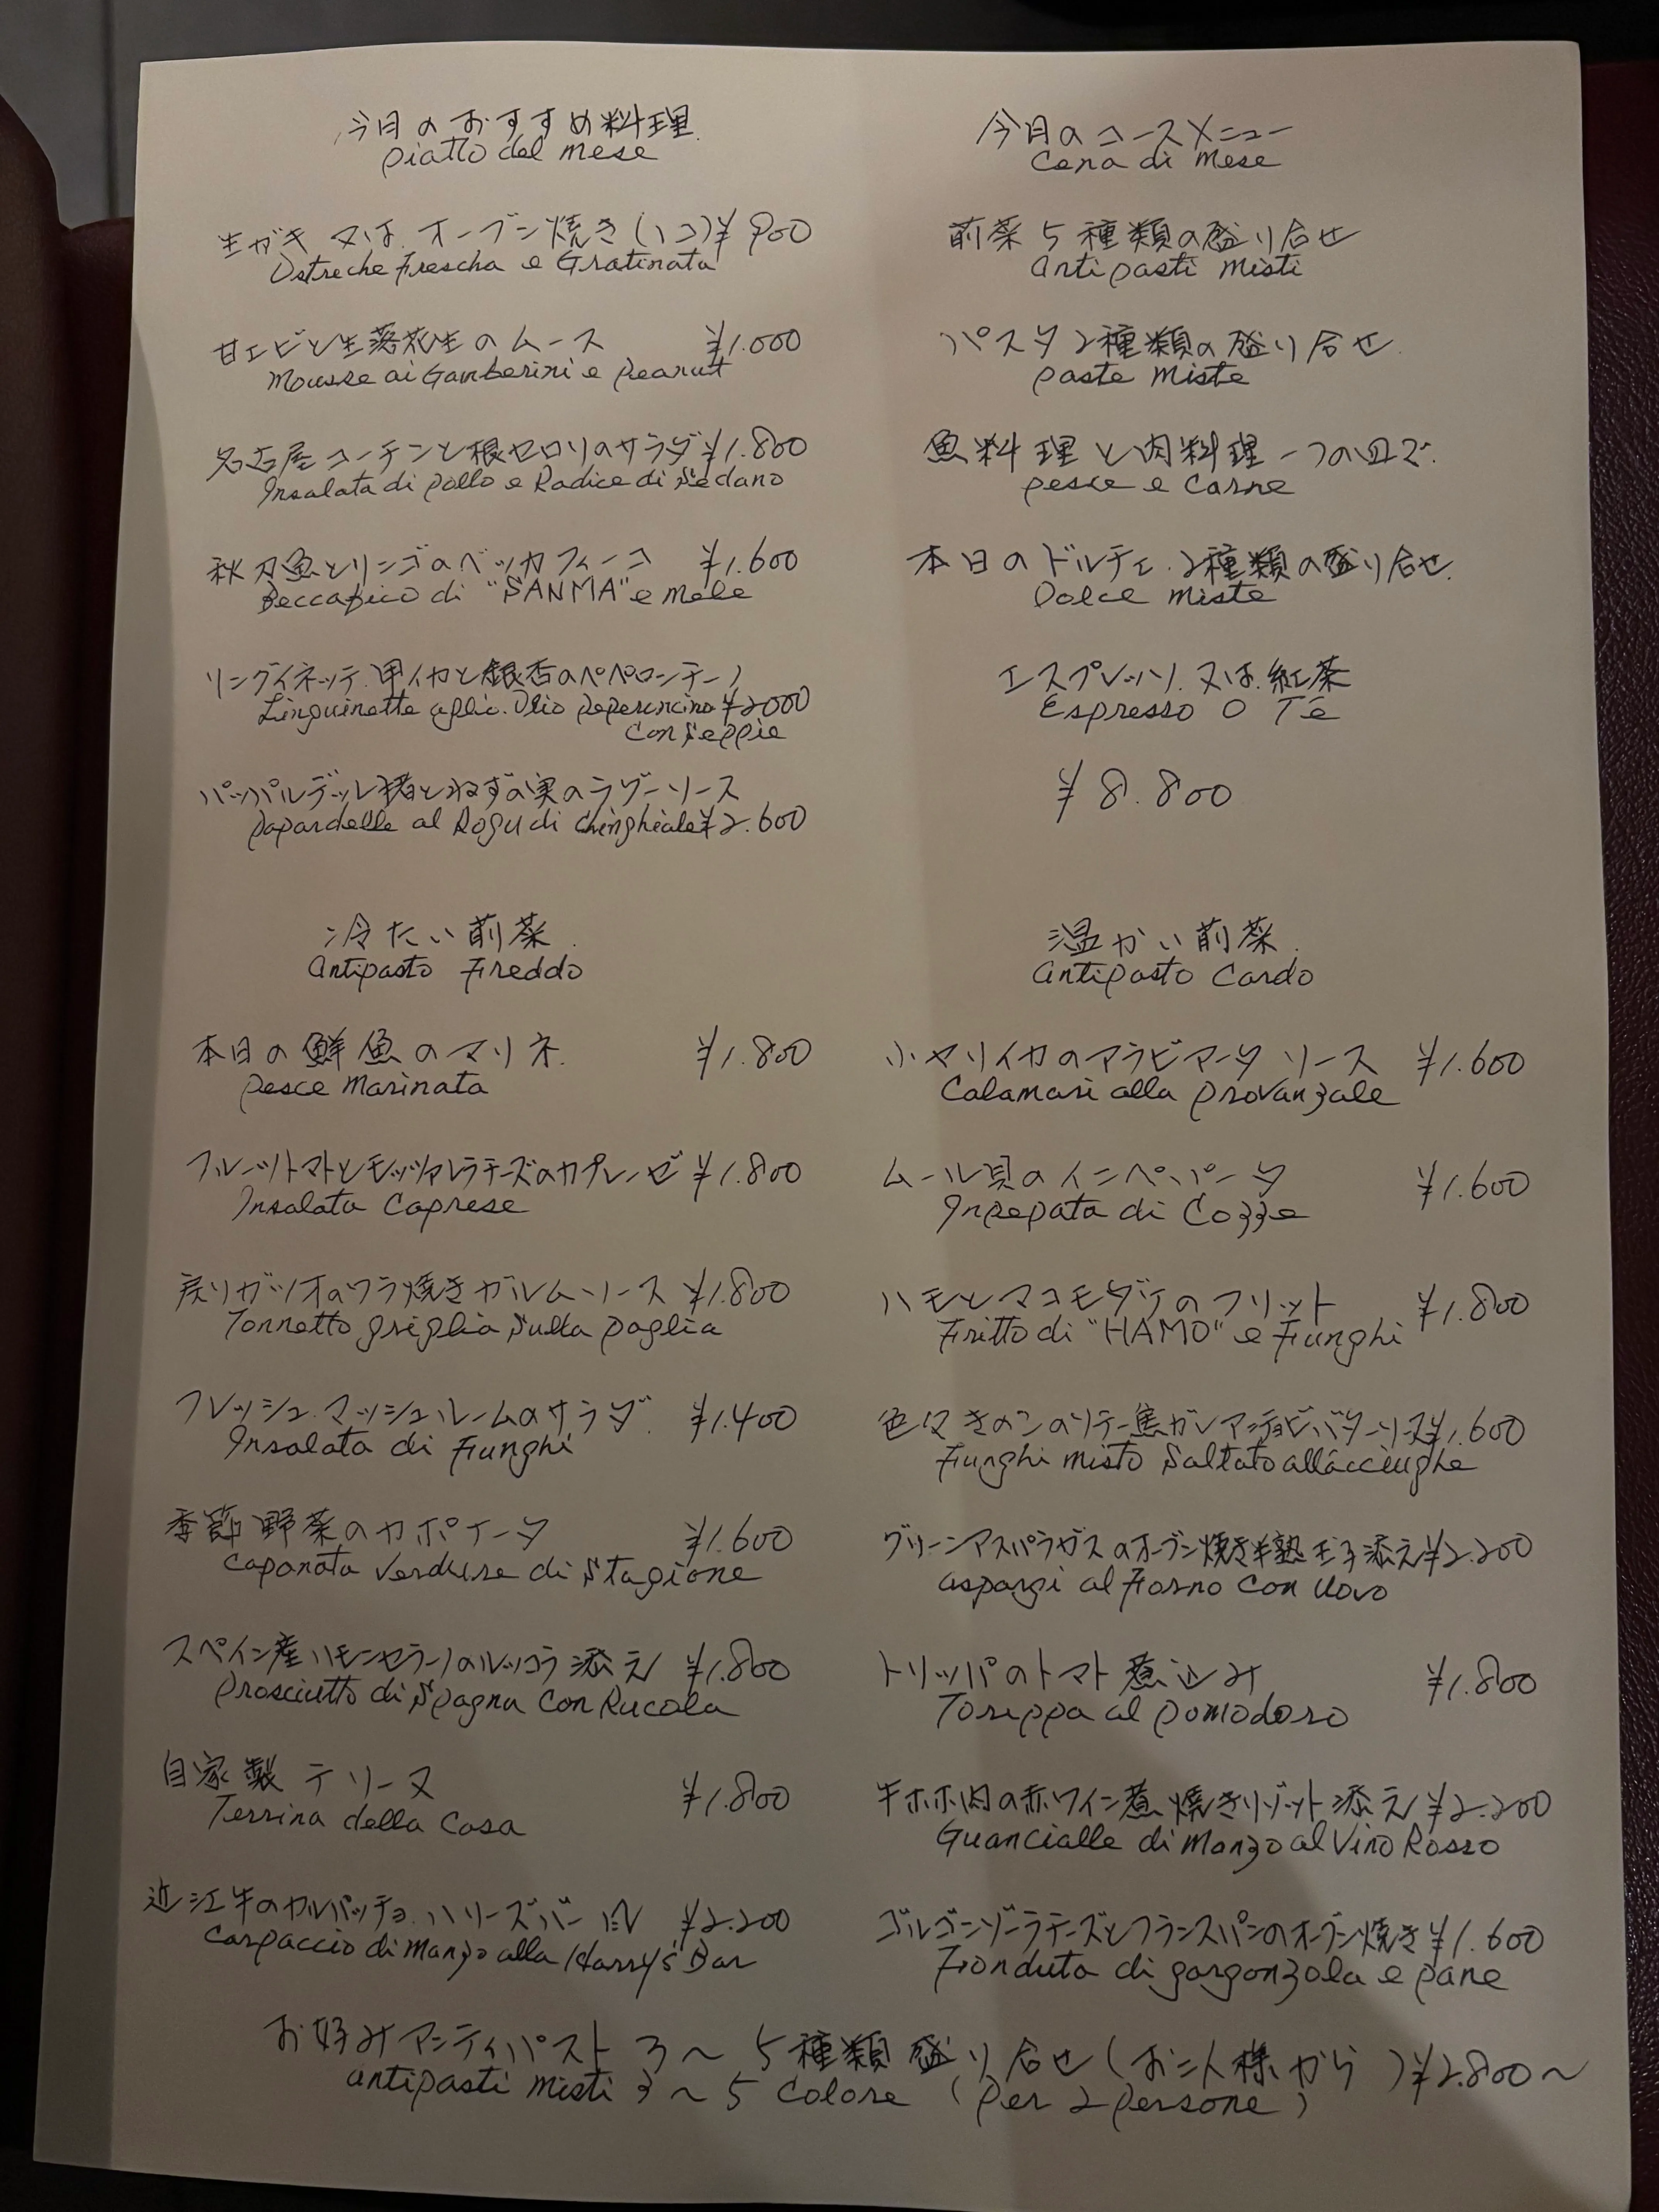 今月のおすすめ料理
piatto del mese
生ガキ 又は オーブン焼き(1コ)¥900
Ostreche Frescha e Gratinata
甘エビと生落花生のムース ¥1.000
Mousse ai Gamberini e Peanut
名古屋コーチンと根セロリのサラダ ¥1.800
Insalata di pollo e Radice di Sedano
秋刀魚とリンゴのベッカフィーコ ¥1.600
Beccafico di "SANMA" e Mele
リングイネッテ 甲イカと銀杏のペペロンチーノ
Linguinette aglio. Olio peperoncino ¥2000
con Seppie
パッパルデッレ猪とねずの実のラグーソース
Papardelle al Ragu di Chinghiale ¥2.600
冷たい前菜
Antipasto Freddo
本日の鮮魚のマリネ ¥1.800
Pesce Marinata
フルーツトマトとモッツァレラチーズのカプレーゼ ¥1.800
Insalata Caprese
戻りガツオのワラ焼きガルムソース ¥1.800
Tonnetto griglia Sulla paglia
フレッシュマッシュルームのサラダ ¥1.400
Insalata di Funghi
季節野菜のカポナータ ¥1.600
Caponata Verdure di Stagione
スペイン産ハモンセラーノのルッコラ添え ¥1.800
Prosciutto di Spagna Con Rucola
自家製テリーヌ ¥1.800
Terrina della Casa
近江牛のカルパッチョ ハリーズバー風 ¥2.200
Carpaccio di Manzo alla Harry's Bar
今月のコースメニュー
Cena di Mese
前菜5種類の盛り合せ
Antipasti Misti
パスタ2種類の盛り合せ
Paste Miste
魚料理と肉料理一つの皿で
Pesce e Carne
本日のドルチェ 2種類の盛り合せ
Dolce Miste
エスプレッソ 又は 紅茶
Espresso O Te
¥8.800
温かい前菜
Antipasto Cardo
小ヤリイカのアラビアータソース ¥1.600
Calamari alla Provanzale
ムール貝のインペパータ ¥1.600
Inpepata di Cozze
ハモとマコモダケのフリット ¥1.800
Fritto di "HAMO" e Funghi
色々きのこのソテー焦がしアンチョビバターソース ¥1.600
Funghi misto Saltato all'acciughe
グリーンアスパラガスのオーブン焼き半熟玉子添え ¥2.200
aspargi al Forno Con Uovo
トリッパのトマト煮込み ¥1.800
Toreppa al pomodoro
牛ホホ肉の赤ワイン煮 焼きリゾット添え ¥2.200
Guancialle di Manzo al Vino Rosso
ゴルゴンゾーラチーズとフランスパンのオーブン焼き ¥1.600
Fonduta di gorgonzola e pane
お好みアンティパスト 3〜5種類盛り合せ(お二人様から)¥2.800〜
antipasti misti 3〜5 Colore (Per 2 persone)